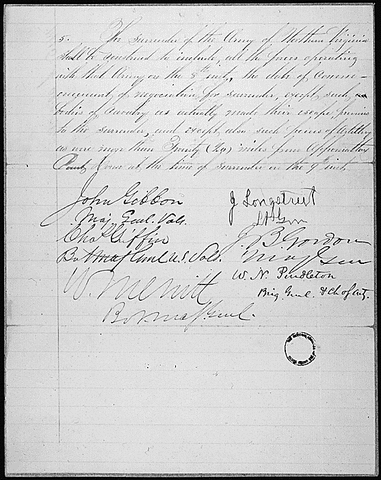 5. The surrender of the Army of Northern Virginia
shall be construed to include, all the forces operating
with that Army on the 8th inst., the date of commen-
cement of negociation for surrender, except such
bodies of Cavalry as actually made their escape, previous
to the surrender, and except, also such pieces of Artillery
as were more than Twenty (20) miles from Appomattox
Court House at the time of surrender on the 9th inst.
John Gibbon
Maj Genl. Vols.
Chas Griffin
Bvt Maj Genl U.S. Vols.
W. Merritt
Bvt Maj Genl.
J Longstreet
Lt Gen
J B Gordon
Maj Gen
W. N. Pendleton
Brig Genl. & Ch of Arty.